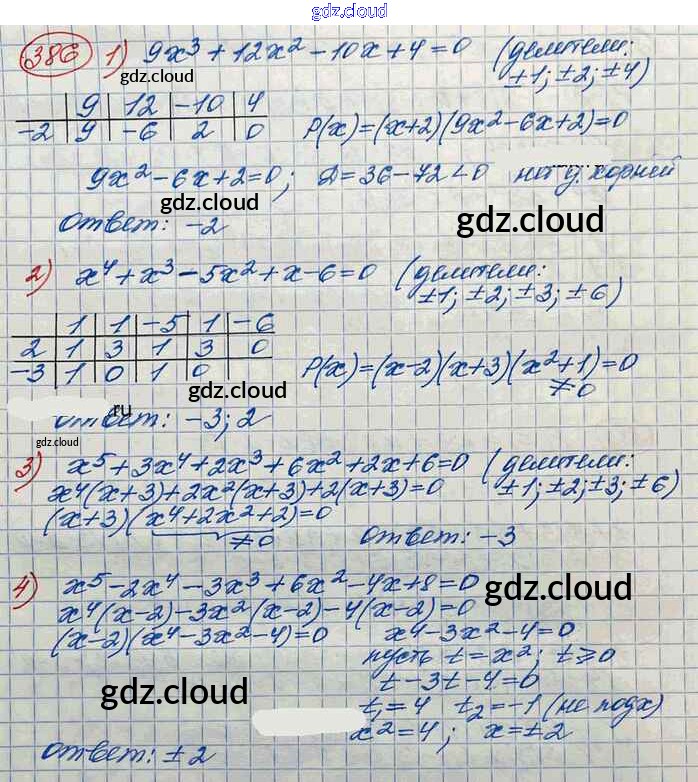 gdz.cloud
gdz.cloud
386 1) 9x³ + 12x² - 10x + 4 = 0 (делители:
±1; ±2; ±4)
gdz.cloud
9 | 12 | -10 | 4
-2 | 9 | -6 | 2 | 0 P(x) = (x+2)(9x² - 6x + 2) = 0
9x² - 6x + 2 = 0; D = 36 - 72 < 0 нет д. корней
gdz.cloud
gdz.cloud
Ответ: -2
2) x⁴ + x³ - 5x² + x - 6 = 0 (делители:
±1; ±2; ±3; ±6)
1 | 1 | -5 | 1 | -6
2 | 1 | 3 | 1 | 3 | 0
-3 | 1 | 0 | 1 | 0 P(x) = (x-2)(x+3)(x²+1) = 0
≠0
gdz.cloud
ru
Ответ: -3; 2
gdz.cloud
3) x⁵ + 3x⁴ + 2x³ + 6x² + 2x + 6 = 0 (делители:
±1; ±2; ±3; ±6)
x⁴(x+3) + 2x²(x+3) + 2(x+3) = 0
(x+3)(x⁴ + 2x² + 2) = 0
≠0
Ответ: -3
4) x⁵ - 2x⁴ - 3x³ + 6x² - 4x + 8 = 0
gdz.cloud
x⁴(x-2) - 3x²(x-2) - 4(x-2) = 0
(x-2)(x⁴ - 3x² - 4) = 0 x⁴ - 3x² - 4 = 0
пусть t = x²; t ⩾ 0
t - 3t - 4 = 0
gdz.cloud
t₁ = 4 t₂ = -1 (не подх)
x² = 4; x = ±2
Ответ: ±2
gdz.cloud